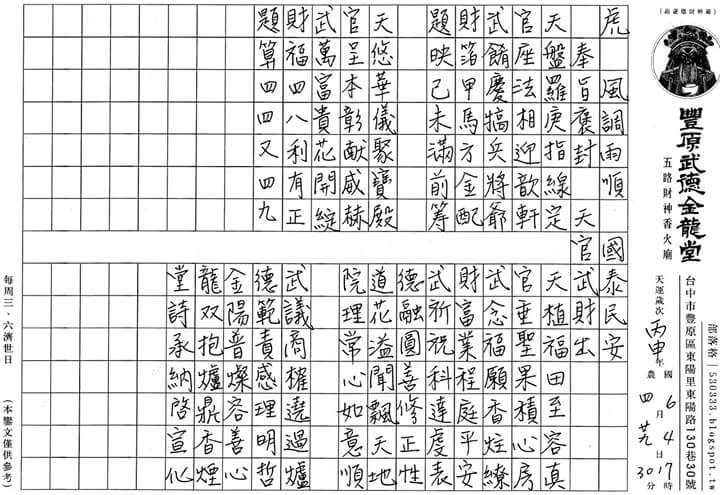 虎　風調雨順　國泰民安
奉旨褒封　天官武財出
天盤羅庚指線定
官座法相迎歆軒
武餚慶犒兵將爺
財箔甲馬方金配
題映己未滿前籌
天悠華儀聚寶殿
官呈本彰献威赫
武萬富貴花開綻
財福四八利有正
題算四四又四九
天植福田至容真
官垂聖果積心房
武念福願香炷繚
財富業程庭平安
武祈祝科達虔表
德融圓善修正性
道花溢聞飄天地
院理常心如意順
武議商榷遶過爐
德範責感理明哲
金陽普燦容善心
龍双抱爐鼎香煙
堂詩承納啓宣化
豐原武德金龍堂
五路財神香火廟
部落格｜530333.blogspot.tw
台中市豐原區東陽里東陽路130巷30號
天運歲次丙申年
國 6月4日17時30分
農 四 廿九
每周三、六濟世日
(本鑾文僅供參考)